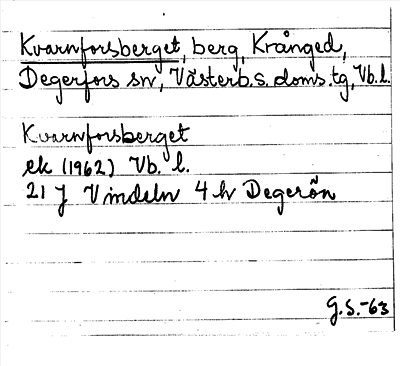 Kvarnforsberget, berg, Krånged,
Degerfors sn, Västerb.s. doms.tg, Vb.l.
Kvarnforsberget
ek (1962) Vb. l.
21 J Vindeln 4 h Degerön
G.S.-63